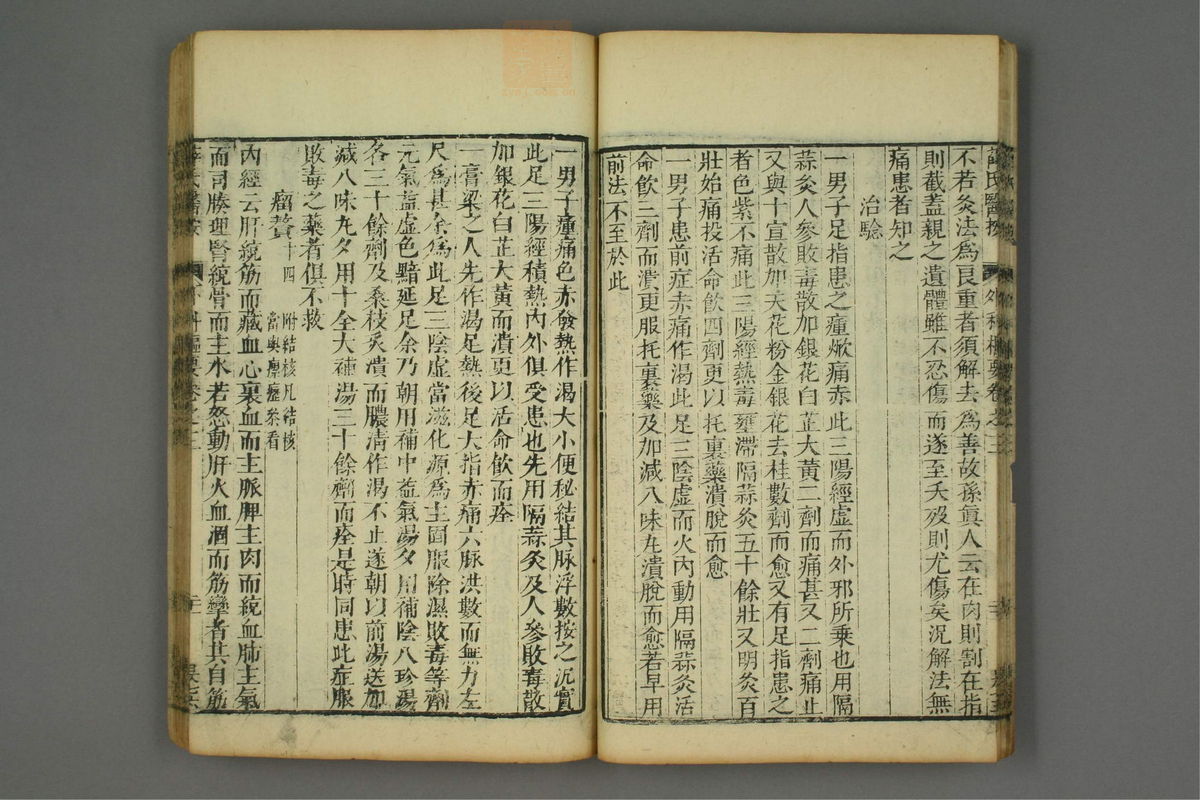 薛氏醫按 外科樞要卷之三
不若灸法爲良重者須解去爲善故孫眞人云在肉則割在指
則截蓋親之遺體雖不忍傷而遂至夭歿則尤傷矣況解法無
痛患者知之
治驗
一男子足指患之瘇焮痛赤此三陽經虛而外邪所乗也用隔
蒜灸人參敗毒散加銀花白芷大黃二劑而痛甚又二劑痛止
又與十宣散加天花粉金銀花去桂數劑而愈又有足指患之
者色紫不痛此三陽經熱毒壅滯隔蒜灸五十餘壯又明灸百
壯始痛投活命飲四劑更以托裏藥潰脫而愈
一男子患前症赤痛作渴此足三陰虛而火內動用隔蒜灸活
命飲三劑而潰更服托裏藥及加減八味丸潰脫而愈若早用
前法不至於此
一男子瘇痛色赤發熱作渴大小便秘結其脉浮數按之沉實
此足三陽經積熱內外俱受患也先用隔蒜灸及人參敗毒散
加銀花白芷大黃而潰更以活命飲而痊
一膏粱之人先作渴足熱後足大指赤痛六脉洪數而無力左
尺爲甚余爲此足三陰虛當滋化源爲主固服除濕敗毒等劑
元氣益虛色黯延足余乃朝用補中益氣湯夕用補陰八珍湯
各三十餘劑及桑枝灸潰而膿清作渴不止遂朝以前湯送加
減八味丸夕用十全大補湯三十餘劑而痊是時同患此症服
敗毒之藥者俱不救
瘤贅十四 附結核凡結核
當與瘰癧叅看
內經云肝統筋而藏血心裏血而主脈脾主肉而統血肺主氣
而司腠理腎統骨而主水若怒動肝火血涸而筋攣者其自筋
薛氏醫按 外科樞要卷之三